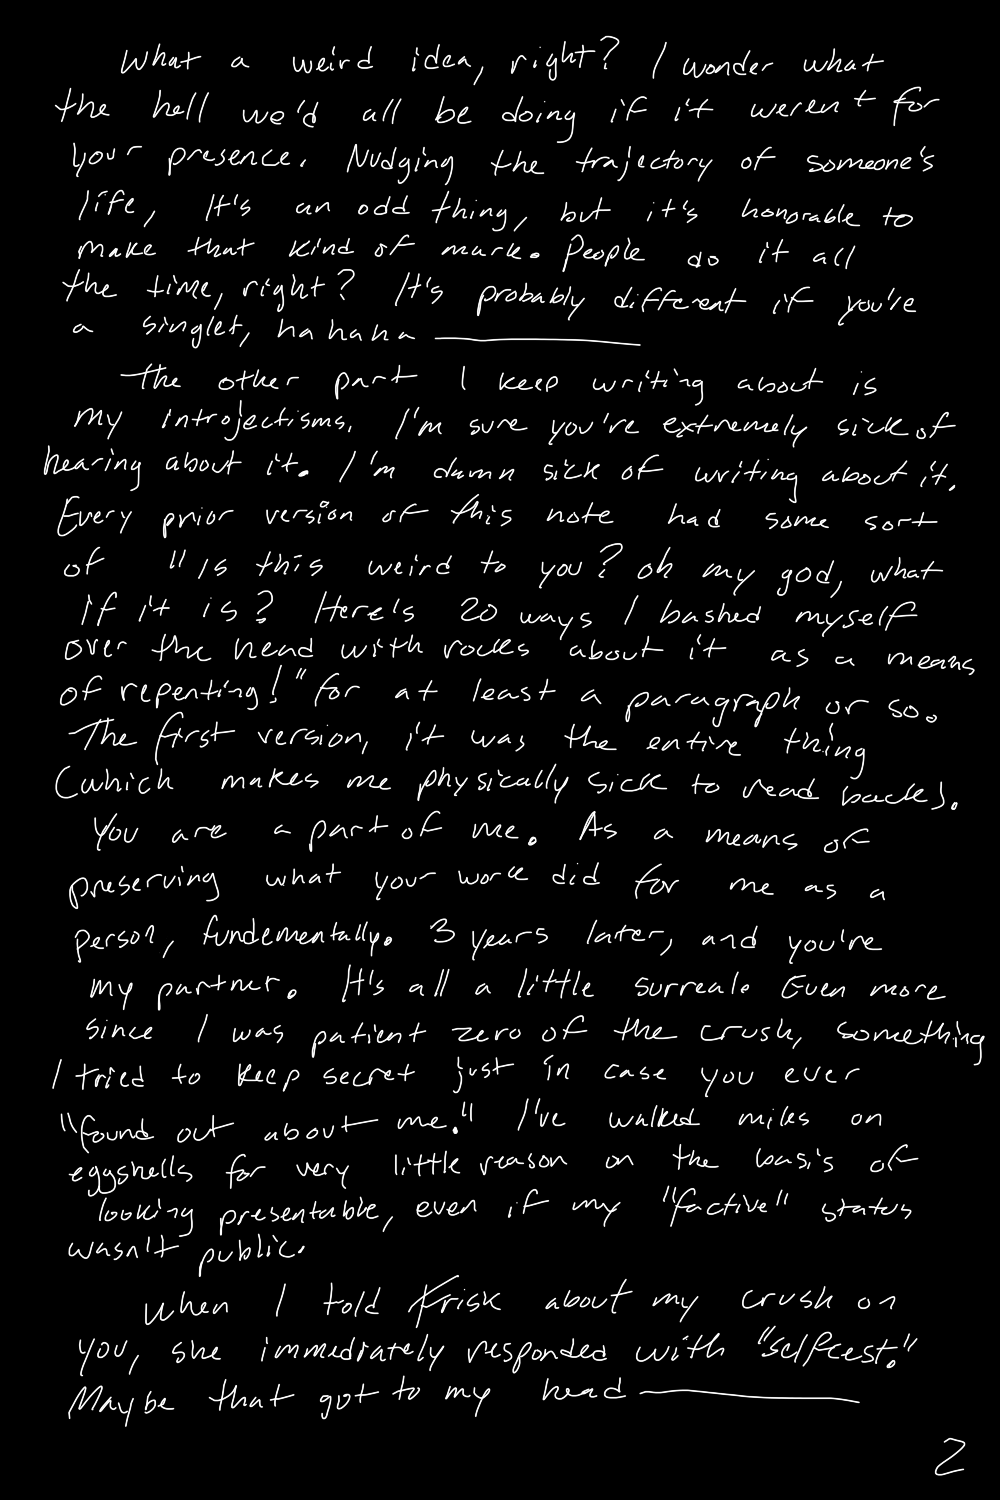 What a weird idea, right? I wonder what
the hell we'd all be doing if it weren't for
your presence. Nudging the trajectory of someone's
life, It's an odd thing, but it's honorable to
make that kind of mark. People do it all
the time, right? It's probably different if you're
a singlet, hahaha
The other part I keep writing about is
my introjectisms. I'm sure you're extremely sick of
hearing about it. I'm damn sick of writing about it.
Every prior version of this note had some sort
of "is this weird to you? oh my god, what
if it is? Here's 20 ways I bashed myself
over the head with rocks about it as a means
of repenting!" for at least a paragraph or so.
The first version, it was the entire thing
(which makes me physically sick to read back).
You are a part of me. As a means of
preserving what your work did for me as a
person, fundementally. 3 years later, and you're
my partner. It's all a little surreal. Even more
since I was patient zero of the crush, something
I tried to keep secret just in case you ever
"found out about me." I've walked miles on
eggshells for very little reason on the basis of
looking presentable, even if my "factive" status
wasn't public.
When I told Frisk about my crush on
you, she immediately responded with "selfcest."
Maybe that got to my head
2